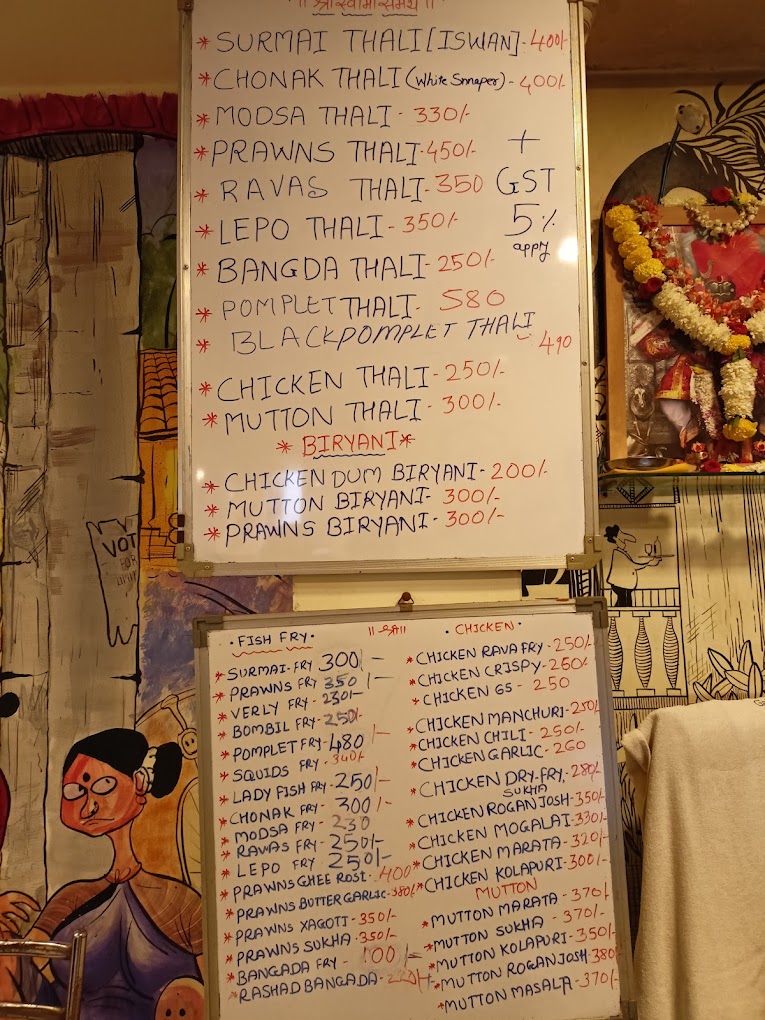 ॥ श्री स्वामी समर्थ ॥
* SURMAI THALI [ISWAN] - 400/-
* CHONAK THALI (White Snnaper) - 400/-
* MODSA THALI - 330/-
* PRAWNS THALI - 450/-
* RAVAS THALI - 350
* LEPO THALI - 350/-
* BANGDA THALI - 250/-
* POMPLET THALI - 580
* BLACKPOMPLET THALI - 490
* CHICKEN THALI - 250/-
* MUTTON THALI - 300/-
+
GST
5%
appy
* BIRYANI *
* CHICKEN DUM BIRYANI - 200/-
* MUTTON BIRYANI - 300/-
* PRAWNS BIRYANI - 300/-
VOT
FOR
॥ श्री ॥
• FISH FRY •
* SURMAI - FRY 300/-
* PRAWNS FRY 350/-
* VERLY FRY - 230/-
* BOMBIL FRY - 250/-
* POMPLET FRY - 480/-
* SQUIDS FRY - 340/-
* LADY FISH FRY - 250/-
* CHONAK FRY - 300/-
* MODSA FRY - 230
* RAVAS FRY - 250/-
* LEPO FRY - 250/-
* PRAWNS GHEE ROST - 400
* PRAWNS BUTTER GARLIC - 380/-
* PRAWNS XAGOTI - 350/-
* PRAWNS SUKHA - 350/-
* BANGADA FRY - 100/-
* RASHAD BANGADA -
• CHICKEN •
* CHICKEN RAVA FRY - 250/-
* CHICKEN CRISPY - 260/-
* CHICKEN 65 - 250
* CHICKEN MANCHURI - 250/-
* CHICKEN CHILI - 250/-
* CHICKEN GARLIC - 260
* CHICKEN DRY-FRY - 280/-
SUKHA
* CHICKEN ROGAN JOSH - 350/-
* CHICKEN MOGALAI - 330/-
* CHICKEN MARATA - 320/-
* CHICKEN KOLAPURI - 300/-
MUTTON
* MUTTON MARATA - 370/-
* MUTTON SUKHA - 370/-
* MUTTON KOLAPURI - 350/-
* MUTTON ROGAN JOSH - 380/-
* MUTTON MASALA - 370/-